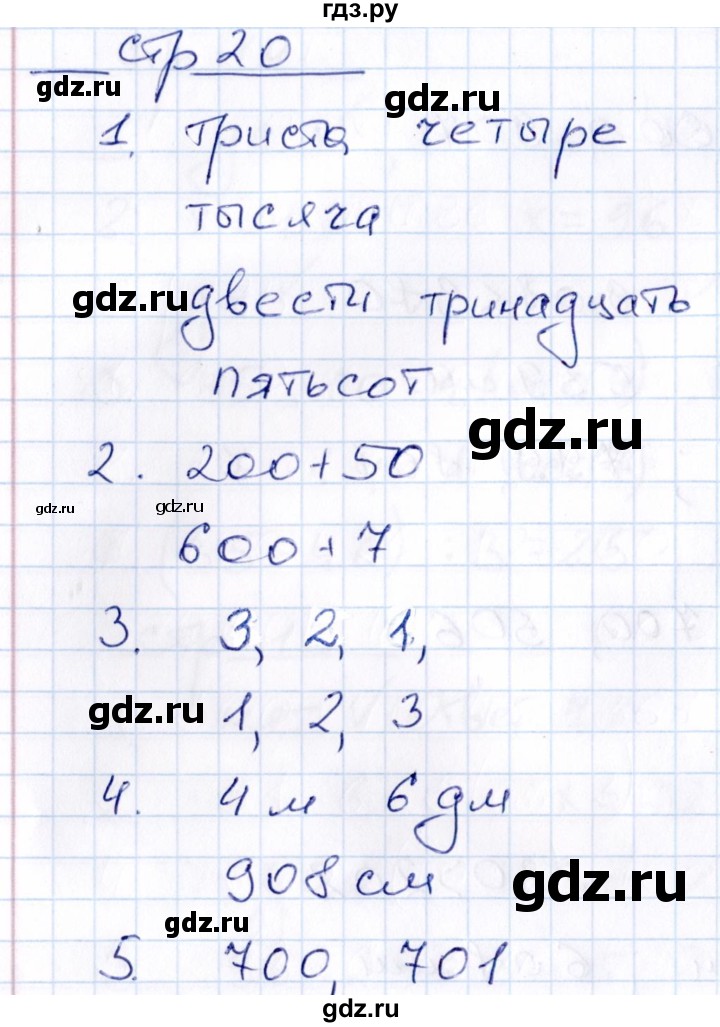 гдз.ру
стр 20
gdz.ru
gdz.ru
1. триста четыре
тысяча
gdz.ru
двести тринадцать
пятьсот
gdz.ru
2. 200+50
gdz.ru
gdz.ru
600+7
3. 3, 2, 1,
gdz.ru
1, 2, 3
4. 4 м 6 дм
gdz.ru
908 см
gdz.ru
5. 700, 701
gdz.ru